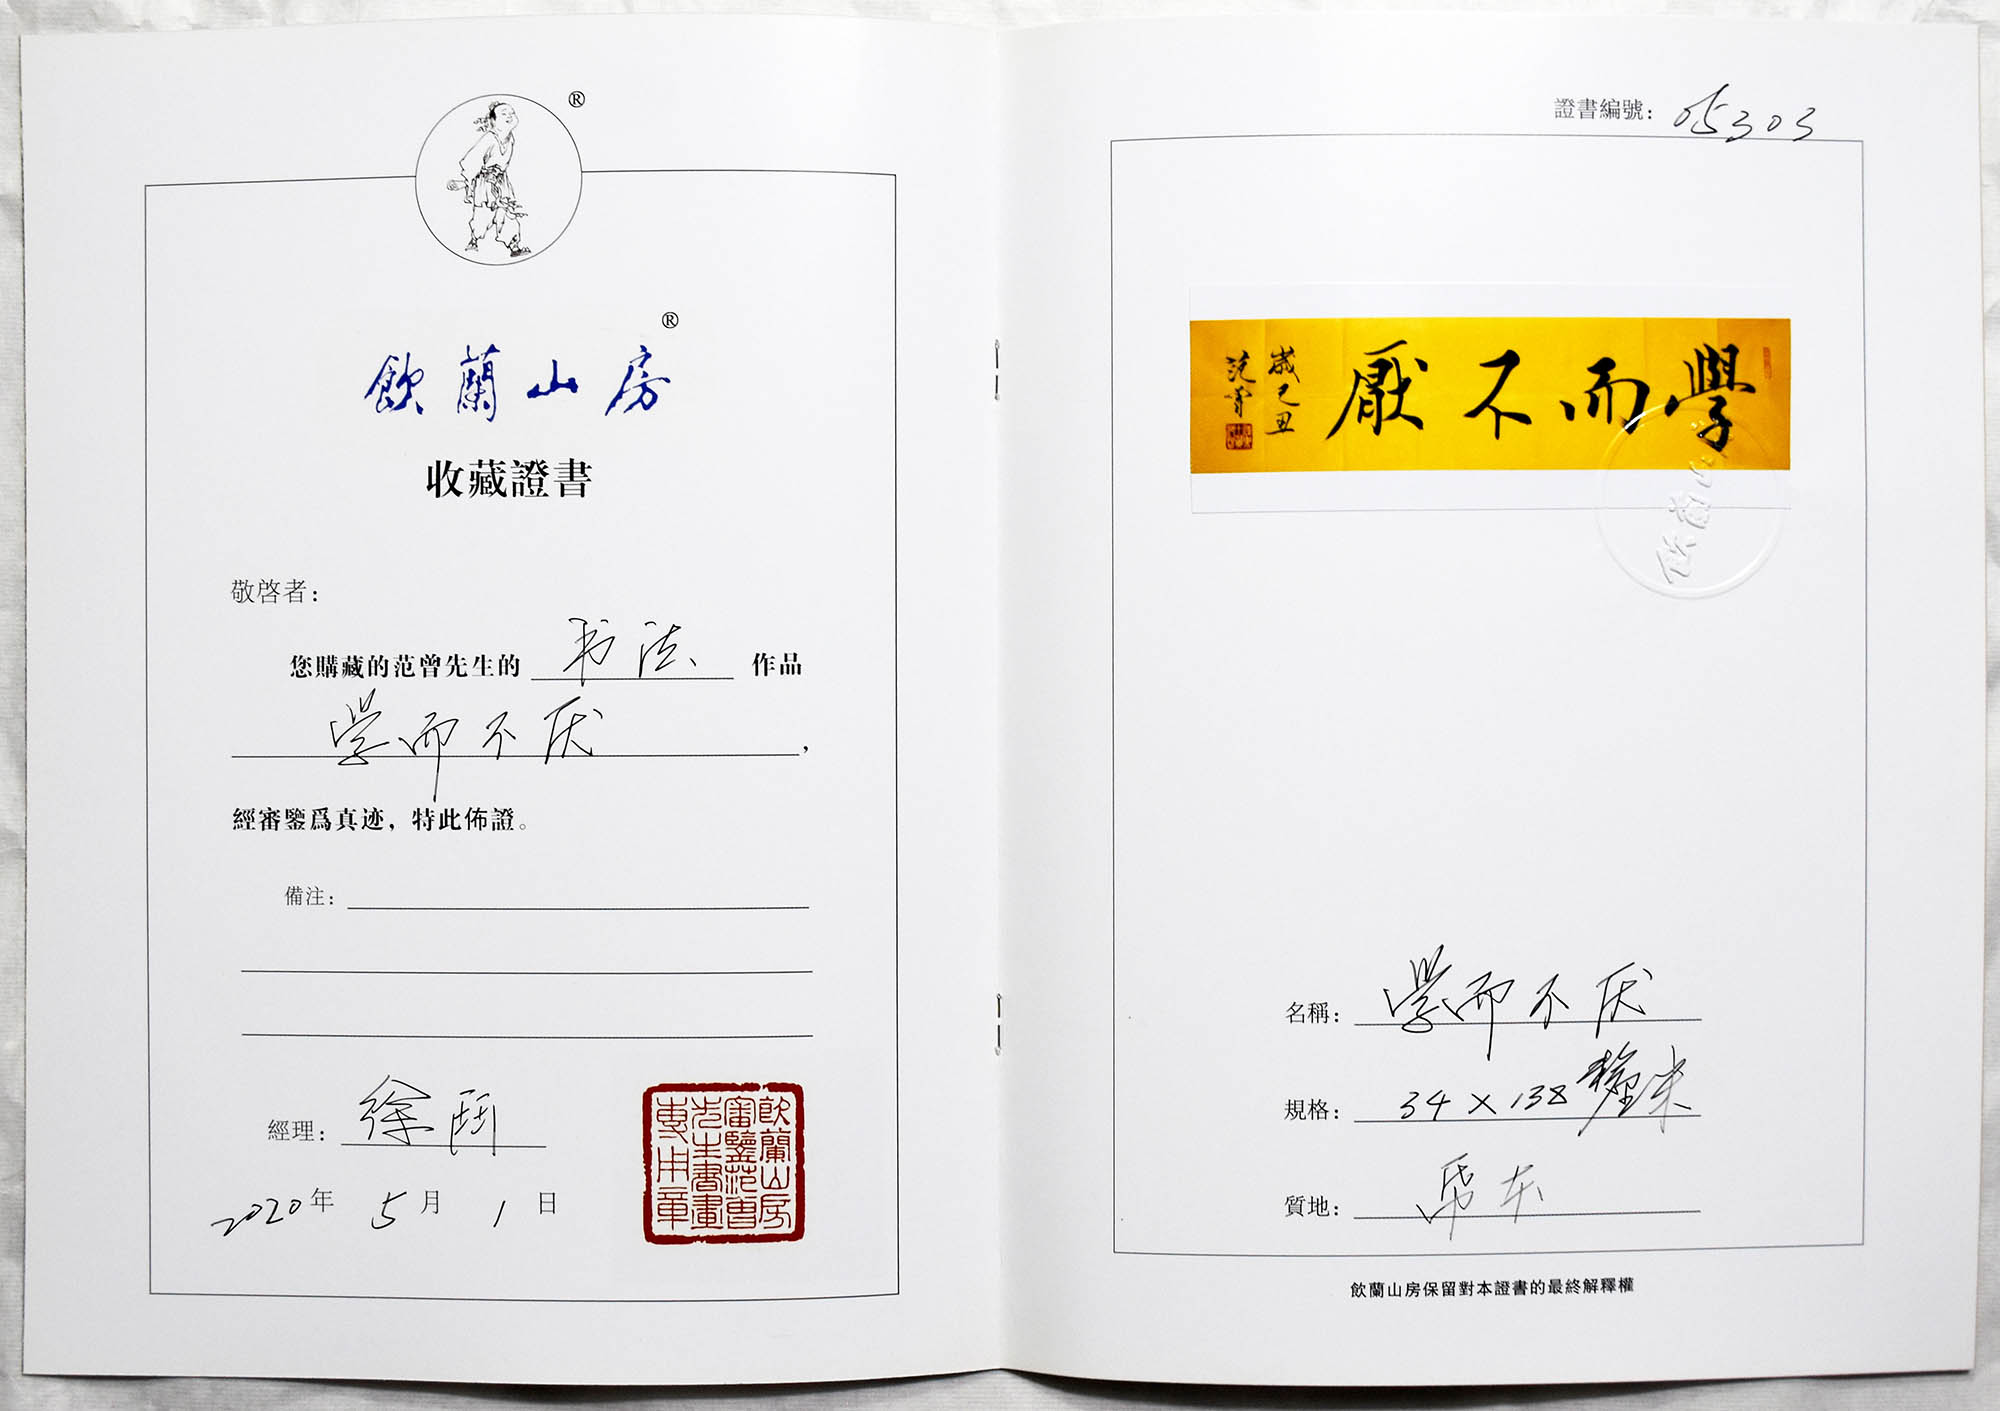 ®
®
飲蘭山房
收藏證書
敬啓者：
您購藏的范曾先生的 书法 作品
学而不厌，
經審鑒爲真迹，特此佈證。
備注：
經理：徐
2020年 5月 1日
飲蘭山房
審鑒范曾
先生書畫
專用章
證書編號：05303
學而不厭
歲己丑
范曾
名稱：学而不厌
規格：34×138釐米
質地：纸本
飲蘭山房保留對本證書的最終解釋權